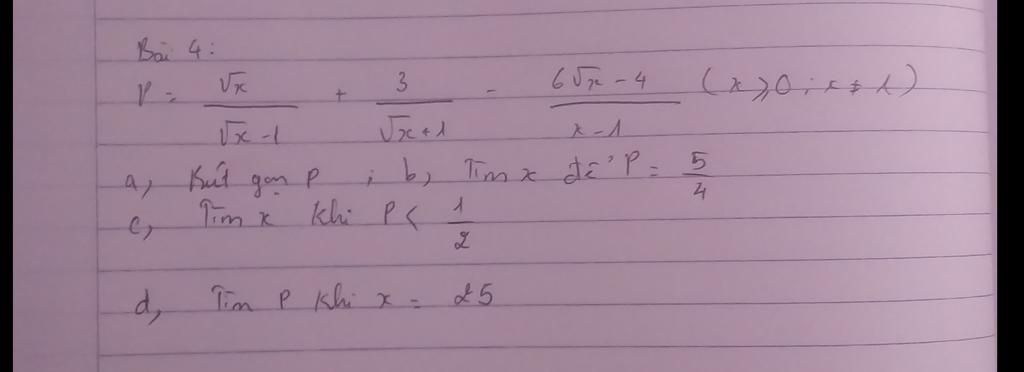 Bài 4:
P = √x / (√x - 1) + 3 / (√x + 1) - (6√x - 4) / (x - 1) (x ⩾ 0 ; x ≠ 1)
a, Rút gọn P ; b, Tìm x để P = 5/4
c, Tìm x khi P < 1/2
d, Tìm P khi x = 25